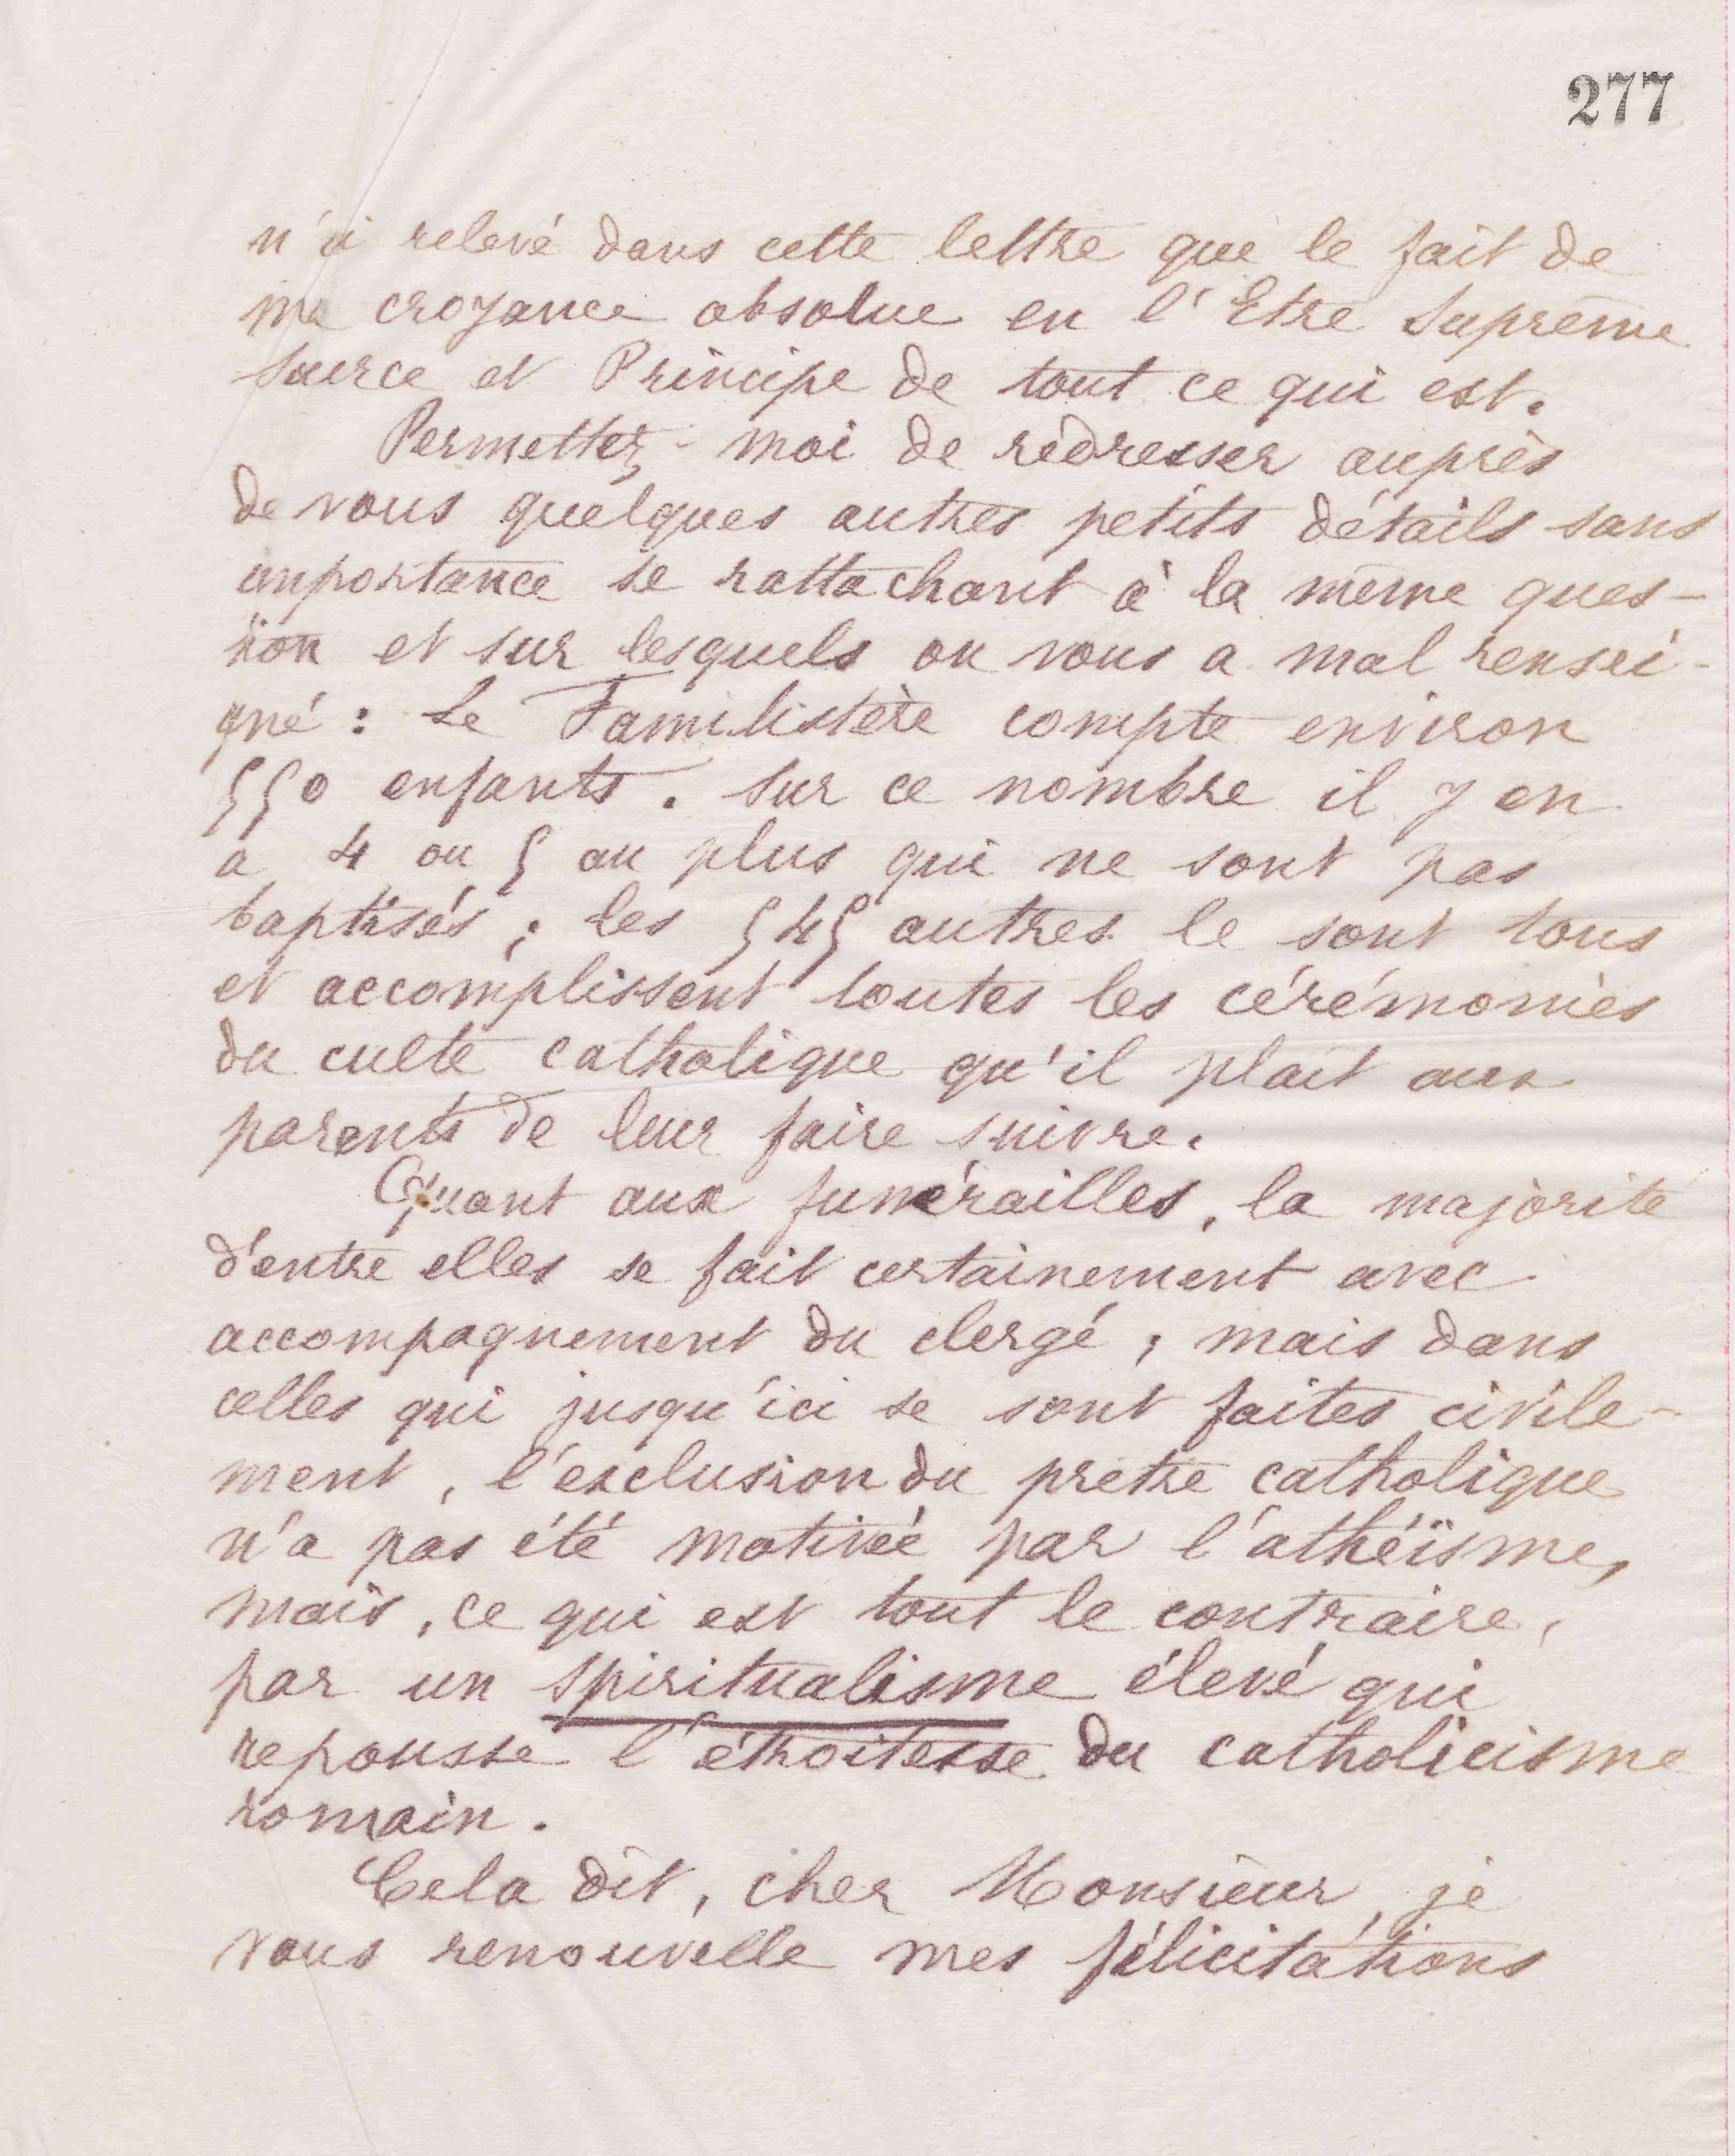 277
n'ai relevé dans cette lettre que le fait de
ma croyance absolue en l'Etre Suprême
source et Principe de tout ce qui est.
Permettez-moi de redresser auprès
de vous quelques autres petits détails sans
importance se rattachant à la même ques-
tion et sur lesquels on vous a mal rensei-
gné : Le Familistère compte environ
550 enfants. Sur ce nombre il y en
a 4 ou 5 au plus qui ne sont pas
baptisés ; les 545 autres le sont tous
et accomplissent toutes les cérémonies
du culte catholique qu'il plait aux
parents de leur faire suivre.
Quant aux funérailles, la majorité
d'entre elles se fait certainement avec
accompagnement du clergé ; mais dans
celles qui jusqu'ici se sont faites civile-
ment, l'exclusion du prêtre catholique
n'a pas été motivée par l'athéïsme,
mais, ce qui est tout le contraire,
par un spiritualisme élevé qui
repousse l'étroitesse du catholicisme
romain.
Cela dit, cher Monsieur, je
vous renouvelle mes félicitations